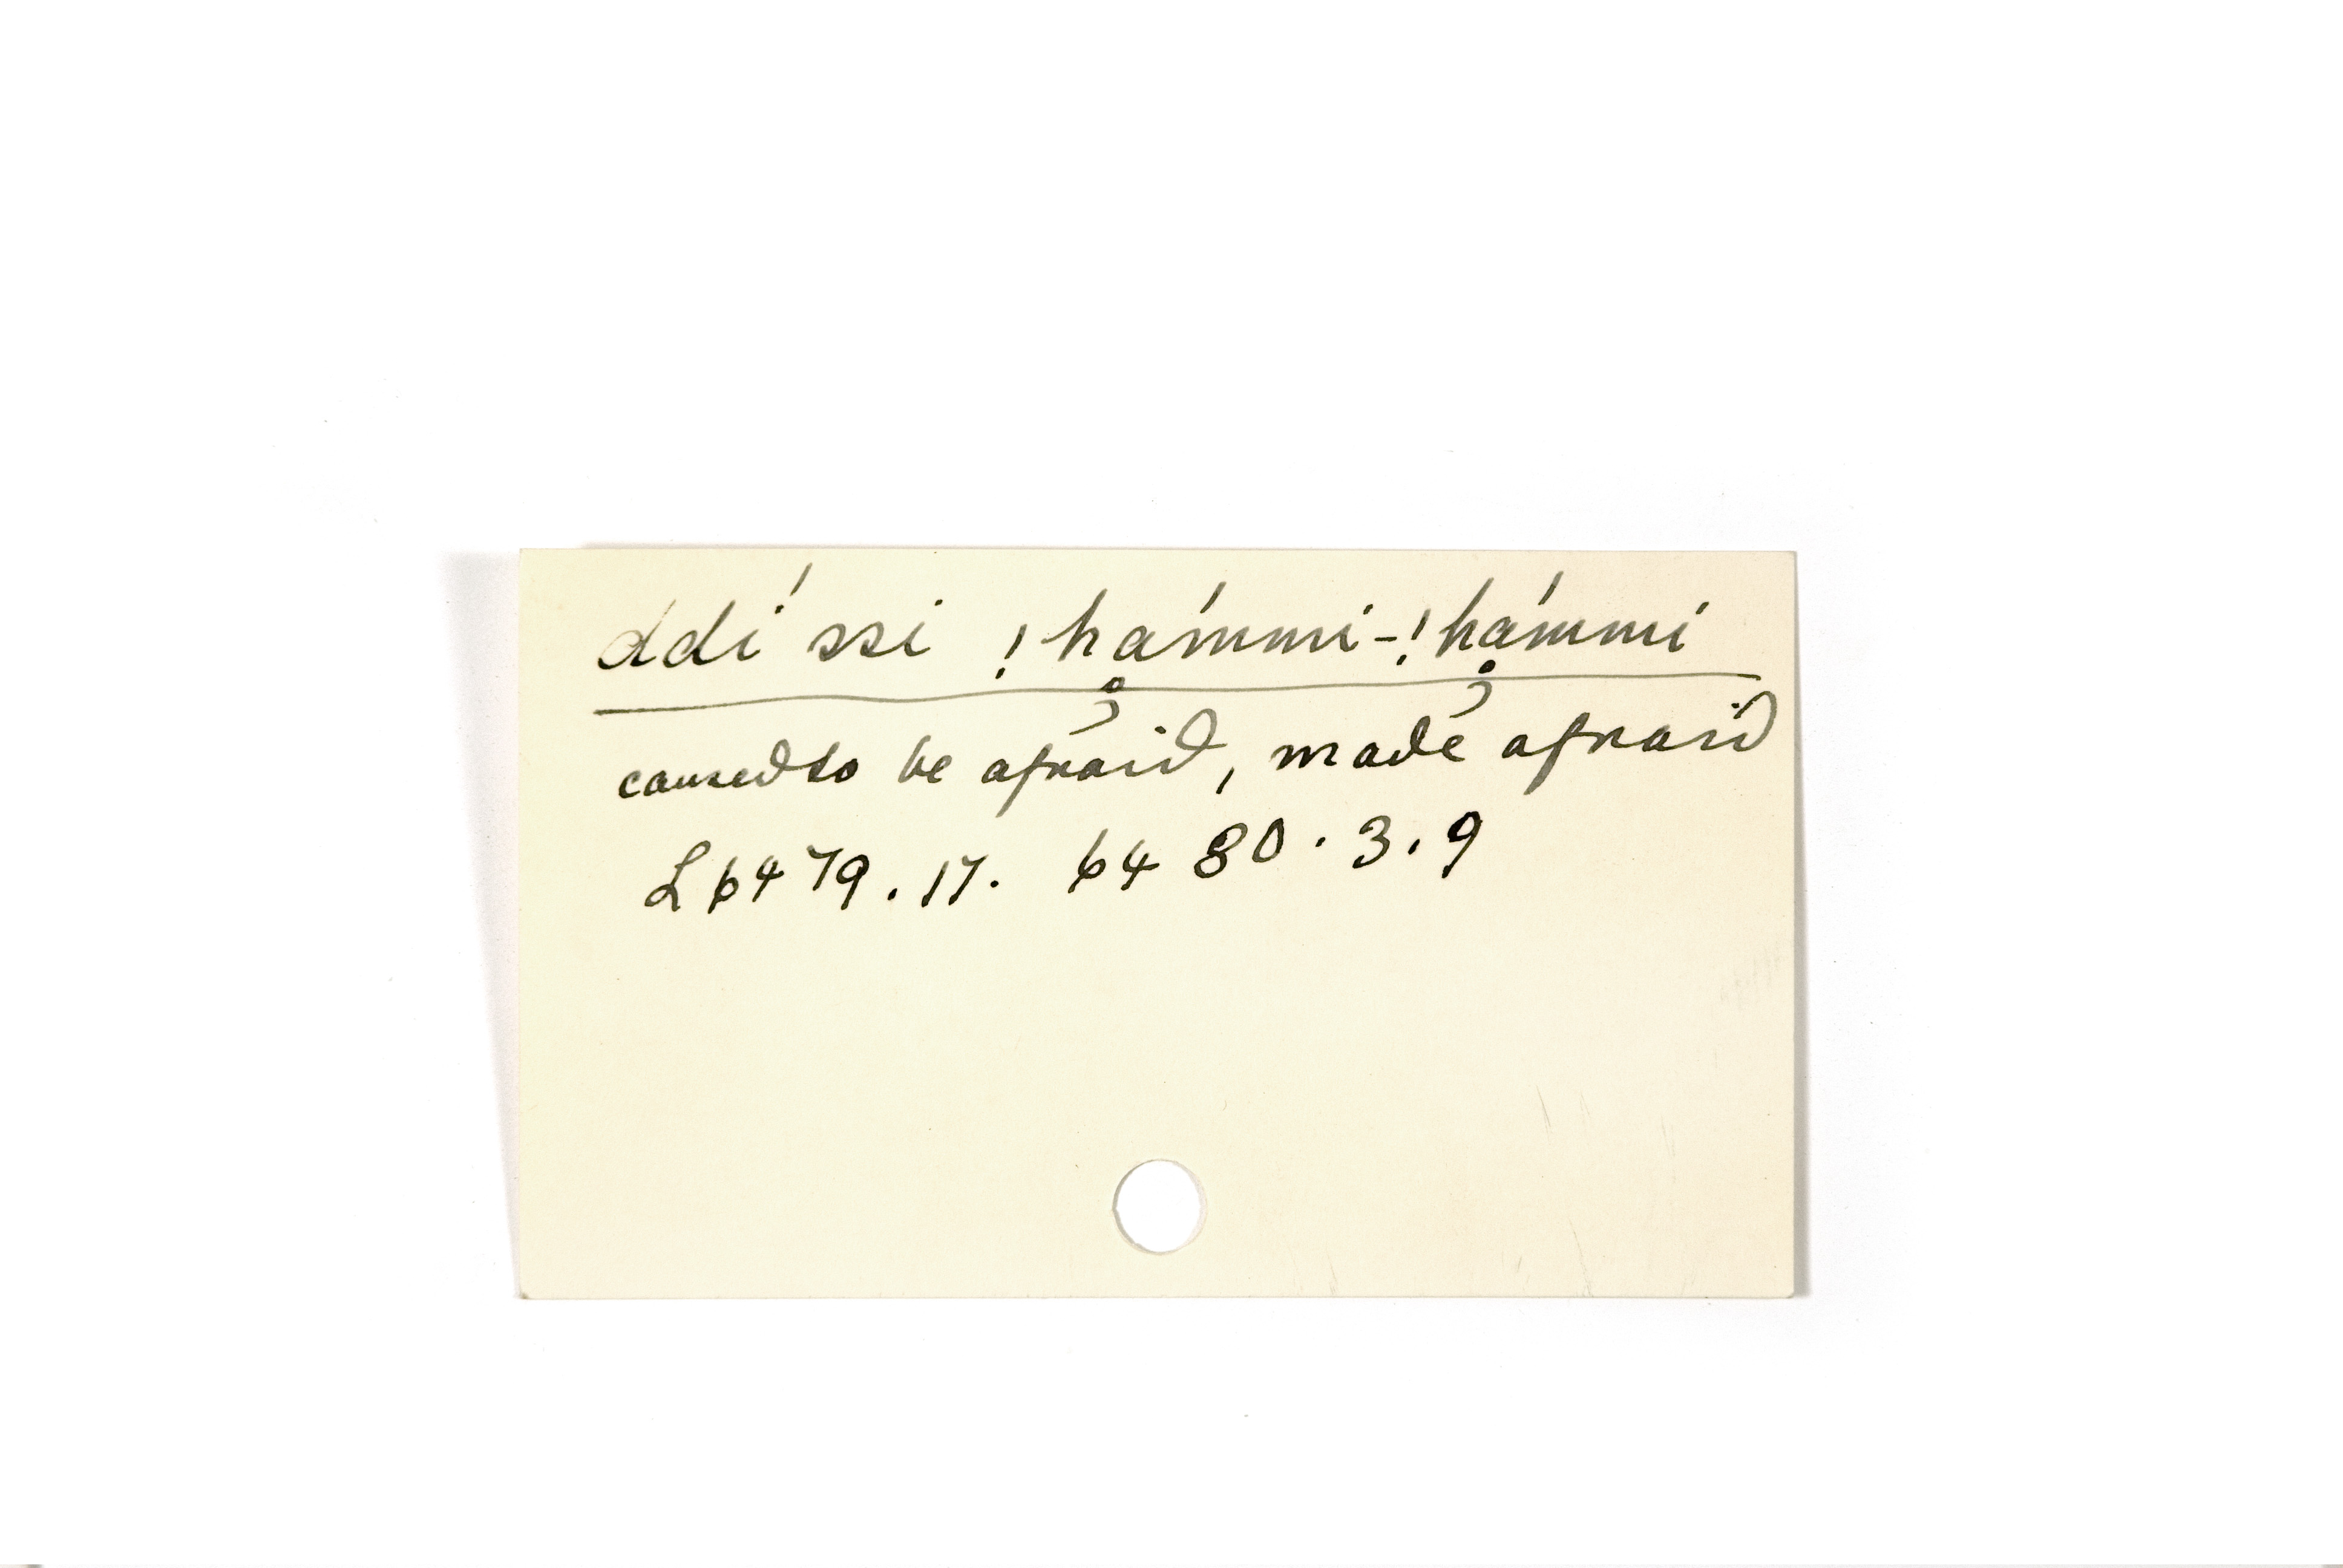 ddí ssi !hą́mmi-!hą́mmi
caused to be afraid, made afraid
L 6479.17. 6480.3.9